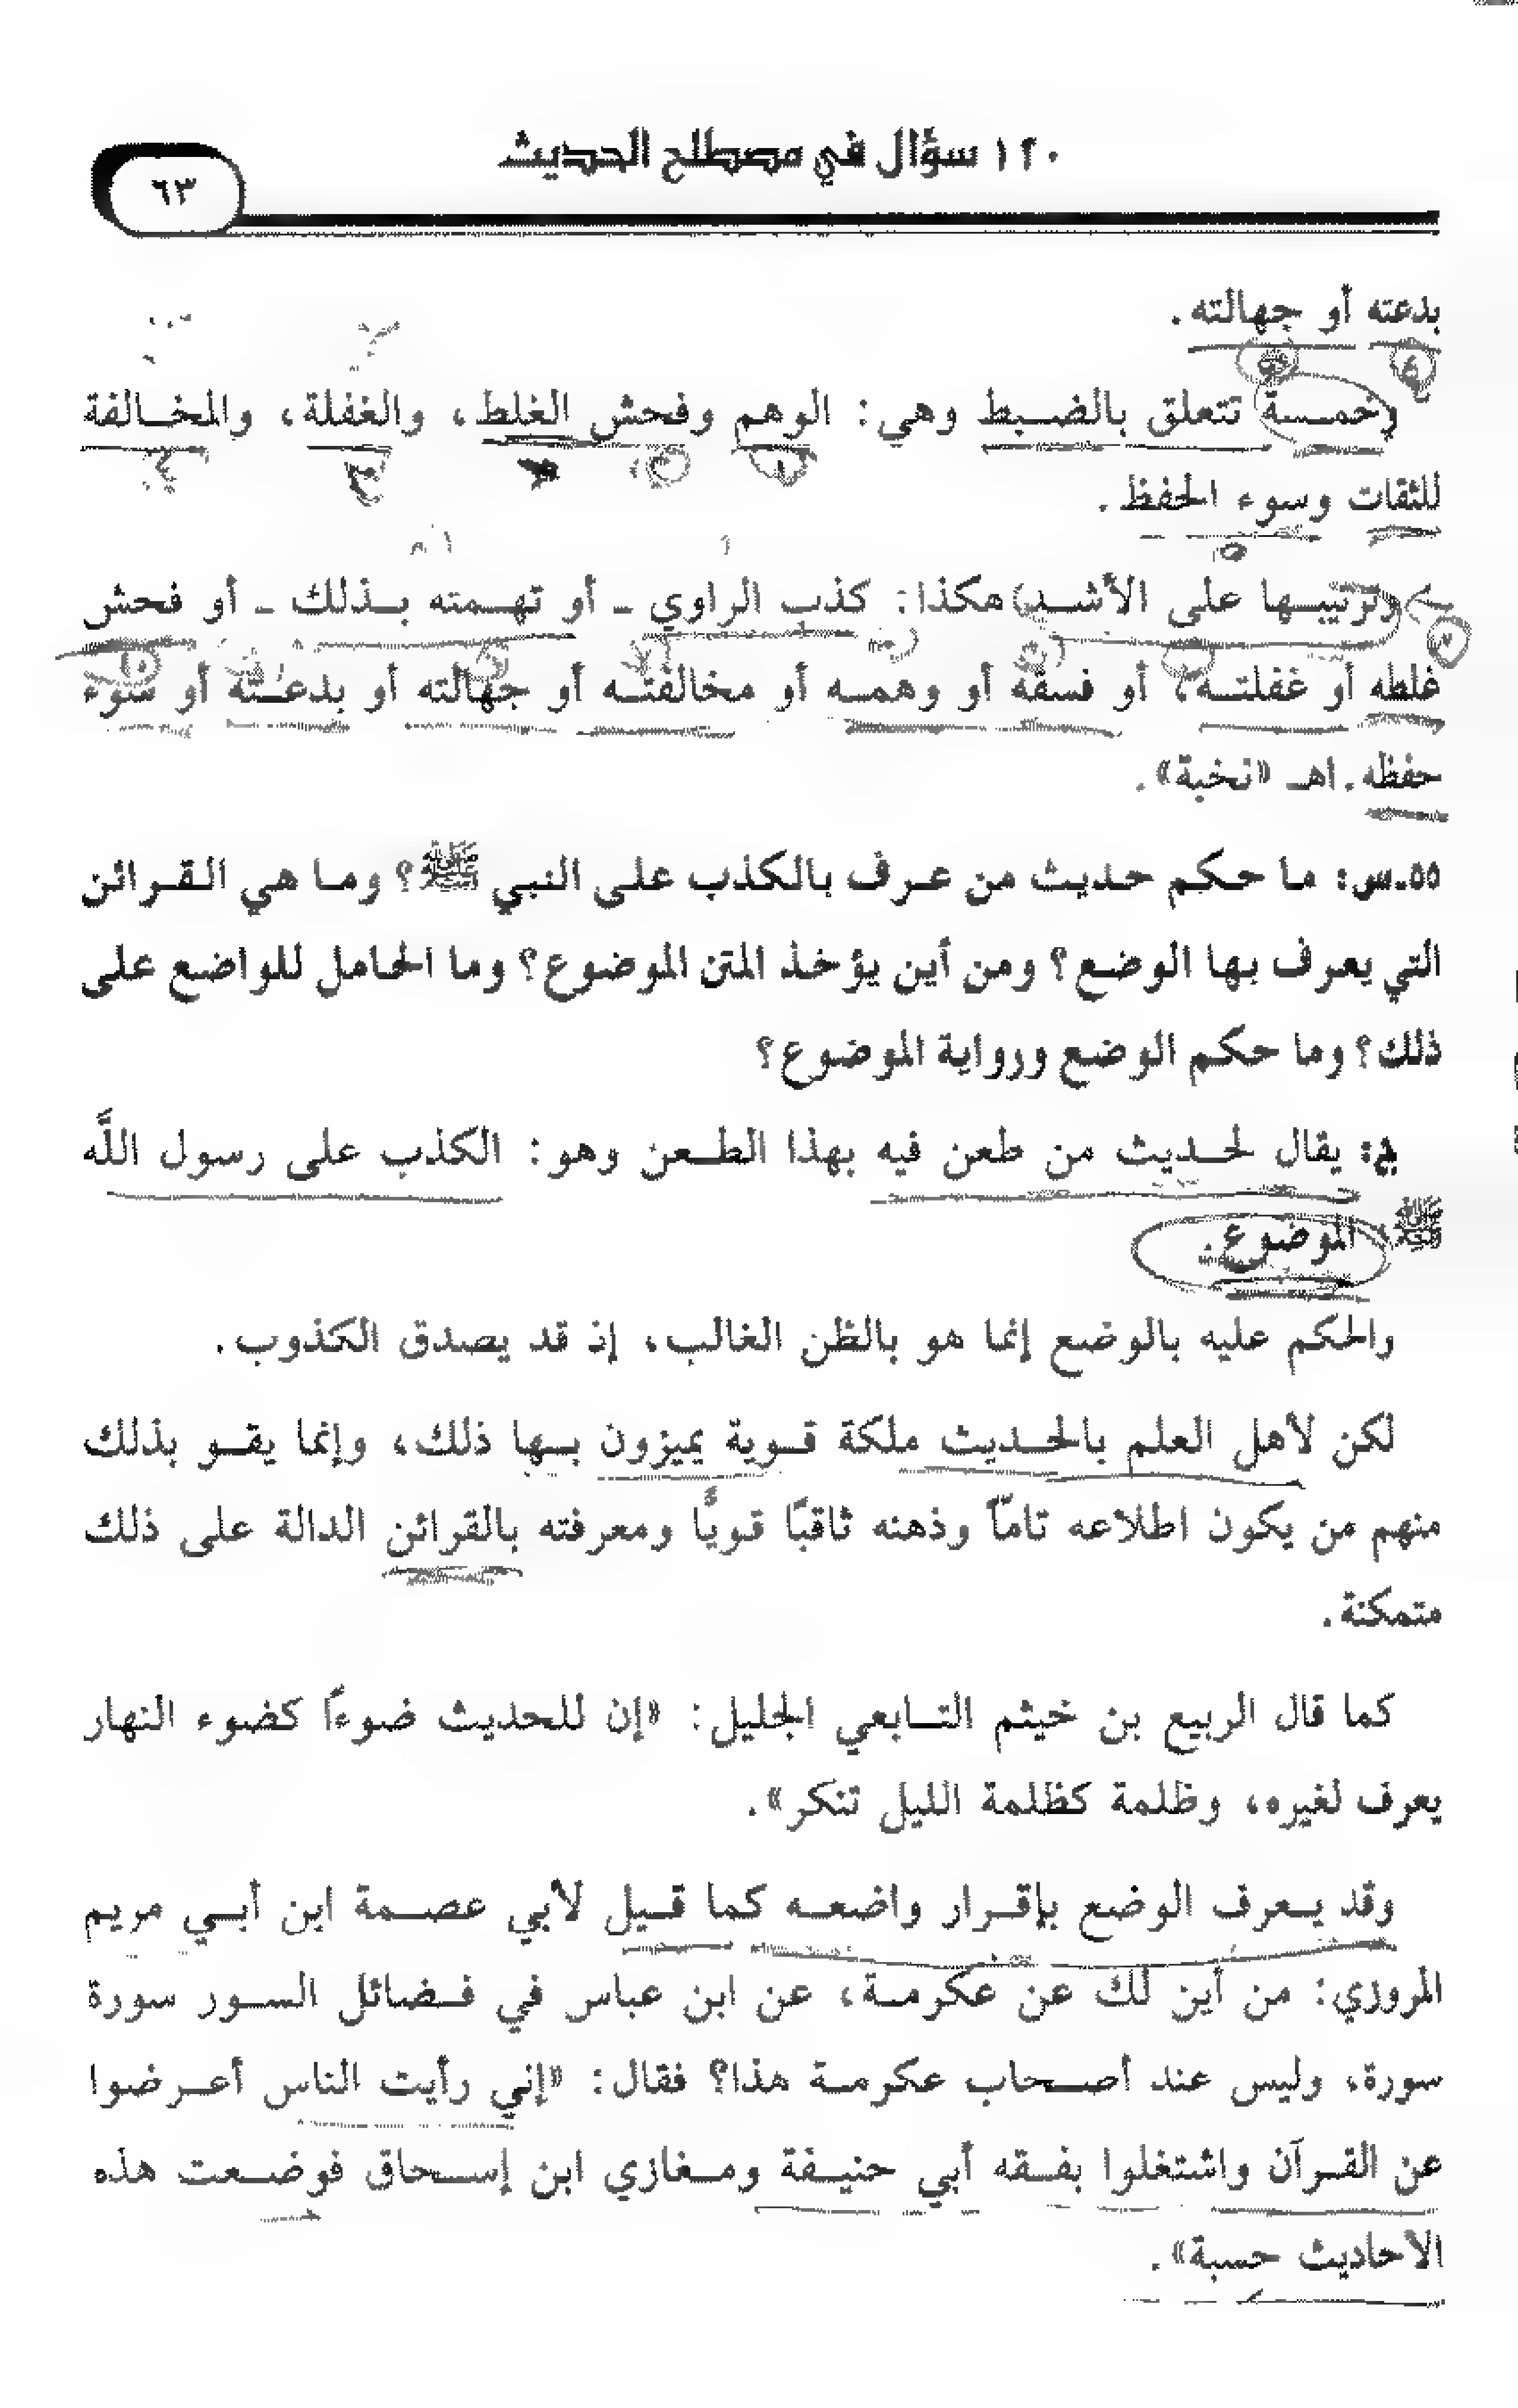 ١٢٠ سؤال في مصطلح الحديث
٦٣
بدعته أو جهالته.
وخمسة تتعلق بالضبط وهي: الوهم وفحش الغلط، والغفلة، والمخالفة
للثقات وسوء الحفظ.
وترتيبها على الأشد هكذا: كذب الراوي - أو تهمته بذلك - أو فحش
غلطه أو غفلته، أو فسقه أو وهمه أو مخالفته أو جهالته أو بدعته أو سوء
حفظه. اهـ «نخبة».
٥٥-س: ما حكم حديث من عرف بالكذب على النبي ﷺ؟ وما هي القرائن
التي يعرف بها الوضع؟ ومن أين يؤخذ المتن الموضوع؟ وما الحامل للواضع على
ذلك؟ وما حكم الوضع ورواية الموضوع؟
ج: يقال لحديث من طعن فيه بهذا الطعن وهو: الكذب على رسول اللَّه
ﷺ الموضوع.
والحكم عليه بالوضع إنما هو بالظن الغالب، إذ قد يصدق الكذوب.
لكن لأهل العلم بالحديث ملكة قوية يميزون بها ذلك، وإنما يقو بذلك
منهم من يكون اطلاعه تامّاً وذهنه ثاقبًا قويًّا ومعرفته بالقرائن الدالة على ذلك
متمكنة.
كما قال الربيع بن خيثم التابعي الجليل: «إن للحديث ضوءًا كضوء النهار
يعرف لغيره، وظلمة كظلمة الليل تنكر».
وقد يعرف الوضع بإقرار واضعه كما قيل لأبي عصمة ابن أبي مريم
المروزي: من أين لك عن عكرمة، عن ابن عباس في فضائل السور سورة
سورة، وليس عند أصحاب عكرمة هذا؟ فقال: «إني رأيت الناس أعرضوا
عن القرآن واشتغلوا بفقه أبي حنيفة ومغازي ابن إسحاق فوضعت هذه
الأحاديث حسبة».